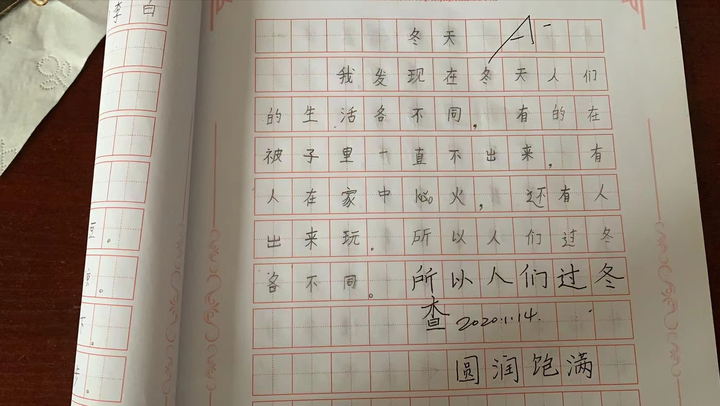 冬天 A-
我发现在冬天人们
的生活各不同，有的在
被子里一直不出来，有
人在家中kǎo火，还有人
出来玩。所以人们过冬
各不同。所以人们过冬
查 2020.1.14.
圆润饱满
李白